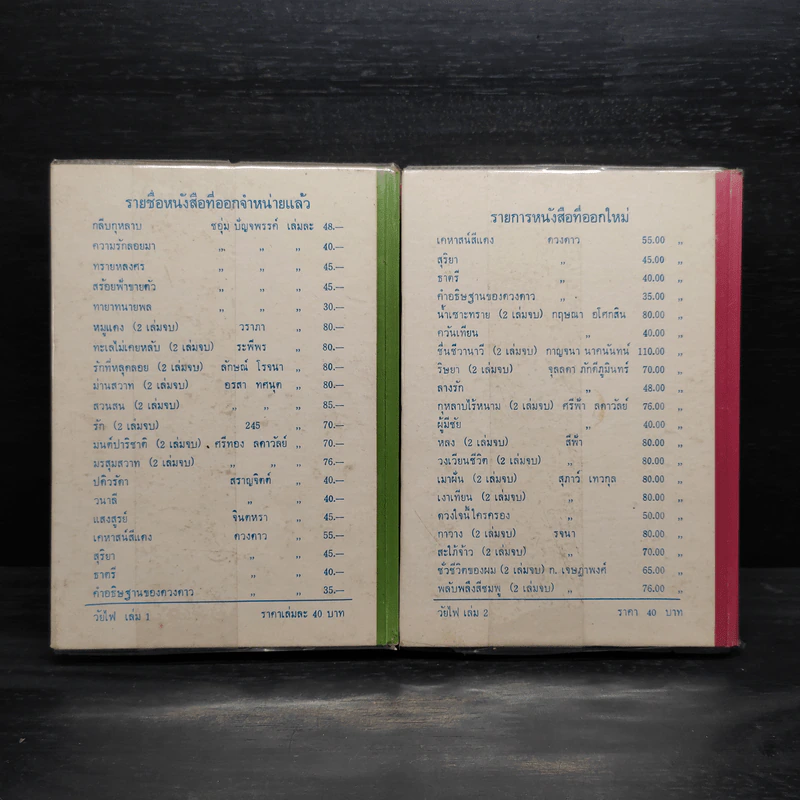 รายชื่อหนังสือที่ออกจำหน่ายแล้ว
กลีบกุหลาบ ชอุ่ม ปัญจพรรค์ เล่มละ 48.—
ความรักลอยมา „ „ „ 40.—
ทรายหลงศร „ „ „ 45.—
สร้อยฟ้าขายตัว „ „ „ 45.—
ทายาทนายพล „ „ „ 30.—
หมูแดง (2 เล่มจบ) วราภา „ 80.—
ทะเลไม่เคยหลับ (2 เล่มจบ) ระพีพร „ 80.—
รักที่หลุดลอย (2 เล่มจบ) ลักษณ์ โรจนา „ 80.—
ม่านสวาท (2 เล่มจบ) อรสา ทศนุต „ 80.—
สวนสน (2 เล่มจบ) „ „ „ 85.—
รัก (2 เล่มจบ) 245 „ 70.—
มนต์ปาริชาติ (2 เล่มจบ) ศรีทอง ลดาวัลย์ „ 70.—
มรสุมสวาท (2 เล่มจบ) „ „ „ 76.—
ปดิวรัดา สราญจิตต์ „ 40.—
วนาลี „ „ 40.—
แสงสูรย์ จินตหรา „ 45.—
เคหาสน์สีแดง ดวงดาว „ 55.—
สุริยา „ „ 45.—
ธาตรี „ „ 40.—
คำอธิษฐานของดวงดาว „ „ 35.—
วัยไฟ เล่ม 1 ราคาเล่มละ 40 บาท
รายการหนังสือที่ออกใหม่
เคหาสน์สีแดง ดวงดาว 55.00 „
สุริยา „ 45.00 „
ธาตรี „ 40.00 „
คำอธิษฐานของดวงดาว „ 35.00 „
น้ำเซาะทราย (2 เล่มจบ) กฤษณา อโศกสิน 80.00 „
ควันเทียน „ 40.00 „
ชื่นชีวานาวี (2 เล่มจบ) กาญจนา นาคนันทน์ 110.00 „
ริษยา (2 เล่มจบ) จุลลดา ภักดีภูมินทร์ 70.00 „
ลางรัก „ 48.00 „
กุหลาบไร้หนาม (2 เล่มจบ) ศรีฟ้า ลดาวัลย์ 76.00 „
ผู้มีชัย „ 40.00 „
หลง (2 เล่มจบ) สีฟ้า 80.00 „
วงเวียนชีวิต (2 เล่มจบ) „ 80.00 „
เมาฝัน (2 เล่มจบ) สุภาว์ เทวกุล 80.00 „
เงาเทียน (2 เล่มจบ) „ 80.00 „
ดวงใจนี้ใครครอง „ 50.00 „
กาวาง (2 เล่มจบ) รจนา 80.00 „
สะใภ้จ้าว (2 เล่มจบ) „ 70.00 „
ชั่วชีวิตของผม (2 เล่มจบ) ก. เจษฎาพงศ์ 65.00 „
พลับพลึงสีชมพู (2 เล่มจบ) „ 76.00 „
วัยไฟ เล่ม 2 ราคา 40 บาท